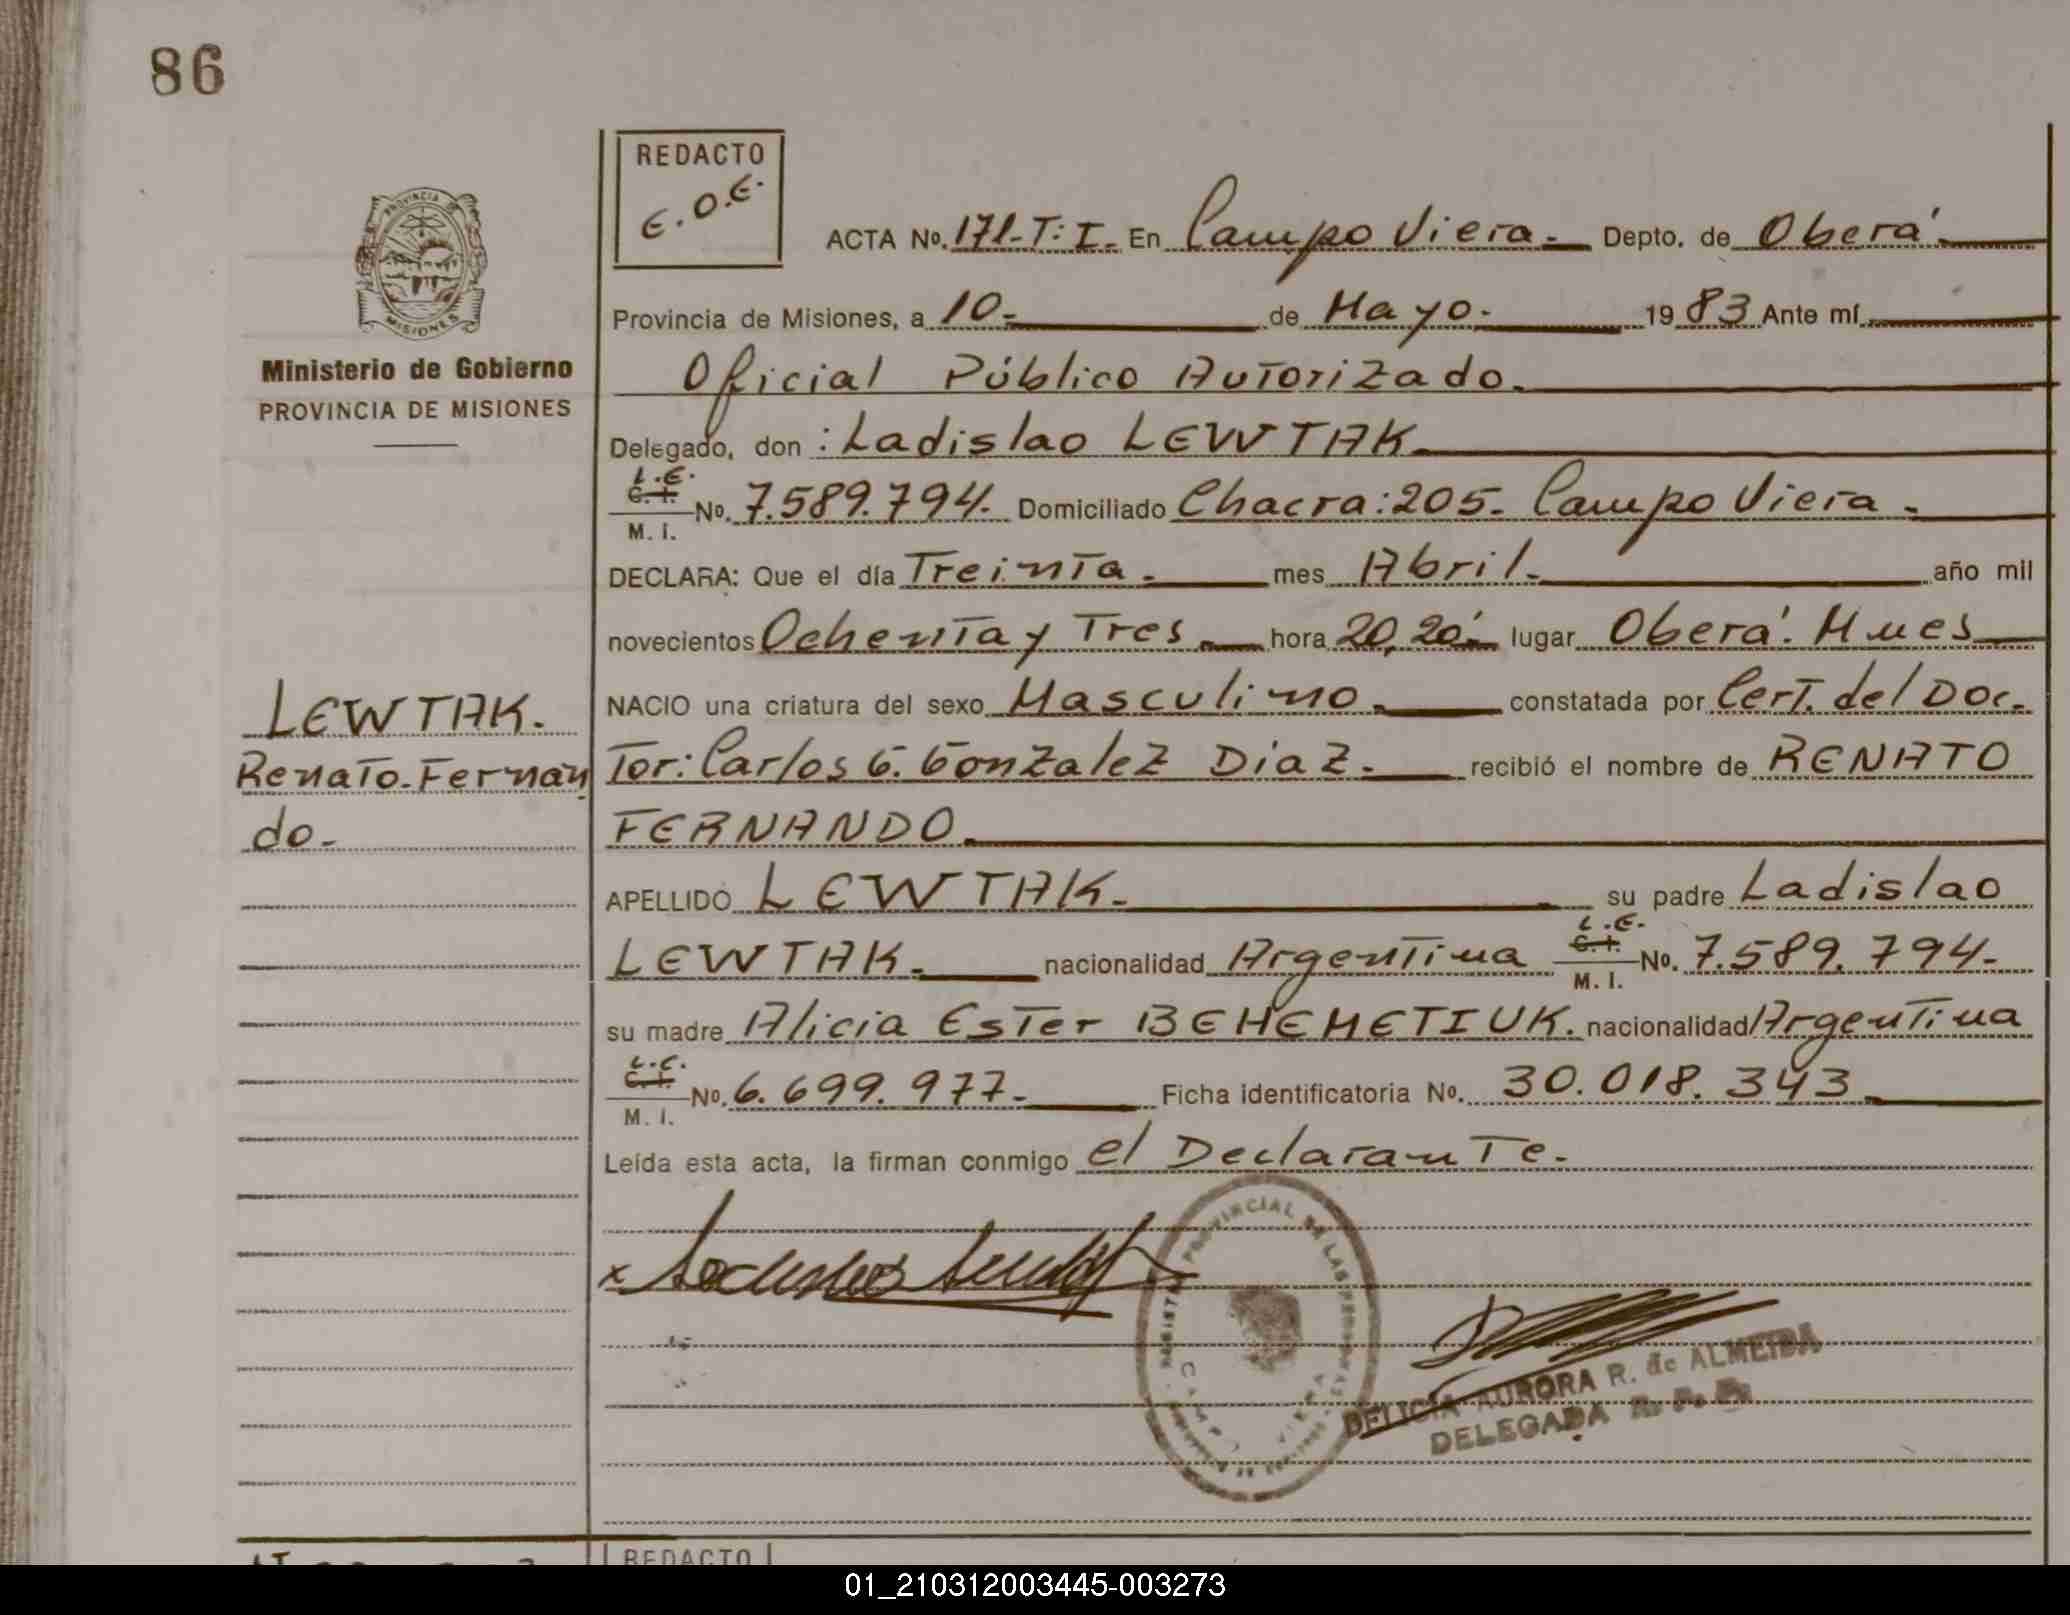 86
REDACTO
E.O.E.
PROVINCIA DE
MISIONES
Ministerio de Gobierno
PROVINCIA DE MISIONES
ACTA No. 171-T:I. En Campo Viera.- Depto. de Oberá.-
Provincia de Misiones, a 10.- de Mayo.- 1983 Ante mí
Oficial Público Autorizado.
Delegado, don : Ladislao LEWTAK.
L.E.
C.I.
M. I.
No. 7.589.794.- Domiciliado Chacra: 205.- Campo Viera.-
DECLARA: Que el día Treinta.- mes Abril.- año mil
novecientos Ochenta y Tres.- hora 20,20´.- lugar Oberá.
NACIO una criatura del sexo Masculino.- constatada por Cert. del Doc.
tor: Carlos G. Gonzalez Diaz.- recibió el nombre de RENATO
FERNANDO.
APELLIDO LEWTAK.- su padre Ladislao
LEWTAK.- nacionalidad Argentina
L.E.
C.I.
M. I.
No. 7.589.794.-
su madre Alicia Ester BEHEMETIUK. nacionalidad Argentina
L.C.
C.I.
M. I.
No. 6.699.977.- Ficha identificatoria No. 30.018.343
Leída esta acta, la firman conmigo el Declarante.-
LEWTAK.
Renato-Fernan
do.-
PROVINCIAL DE LAS PERSONAS
CAMPO VIERA
DELICIA AURORA R. de ALMEIDA
DELEGADA
REDACTO
01_210312003445-003273